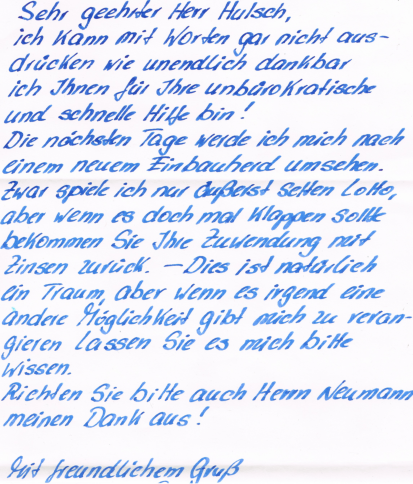 Sehr geehrter Herr Hulsch,
ich kann mit Worten gar nicht aus-
drücken wie unendlich dankbar
ich Ihnen für Ihre unbürokratische
und schnelle Hilfe bin!
Die nächsten Tage werde ich mich nach
einem neuem Einbauherd umsehen.
Zwar spiele ich nur äußerst selten Lotto,
aber wenn es doch mal klappen sollte
bekommen Sie Ihre Zuwendung mit
Zinsen zurück. – Dies ist natürlich
ein Traum, aber wenn es irgend eine
andere Möglichkeit gibt mich zu revan-
gieren lassen Sie es mich bitte
wissen.
Richten Sie bitte auch Herrn Neumann
meinen Dank aus!
Mit freundlichem Gruß